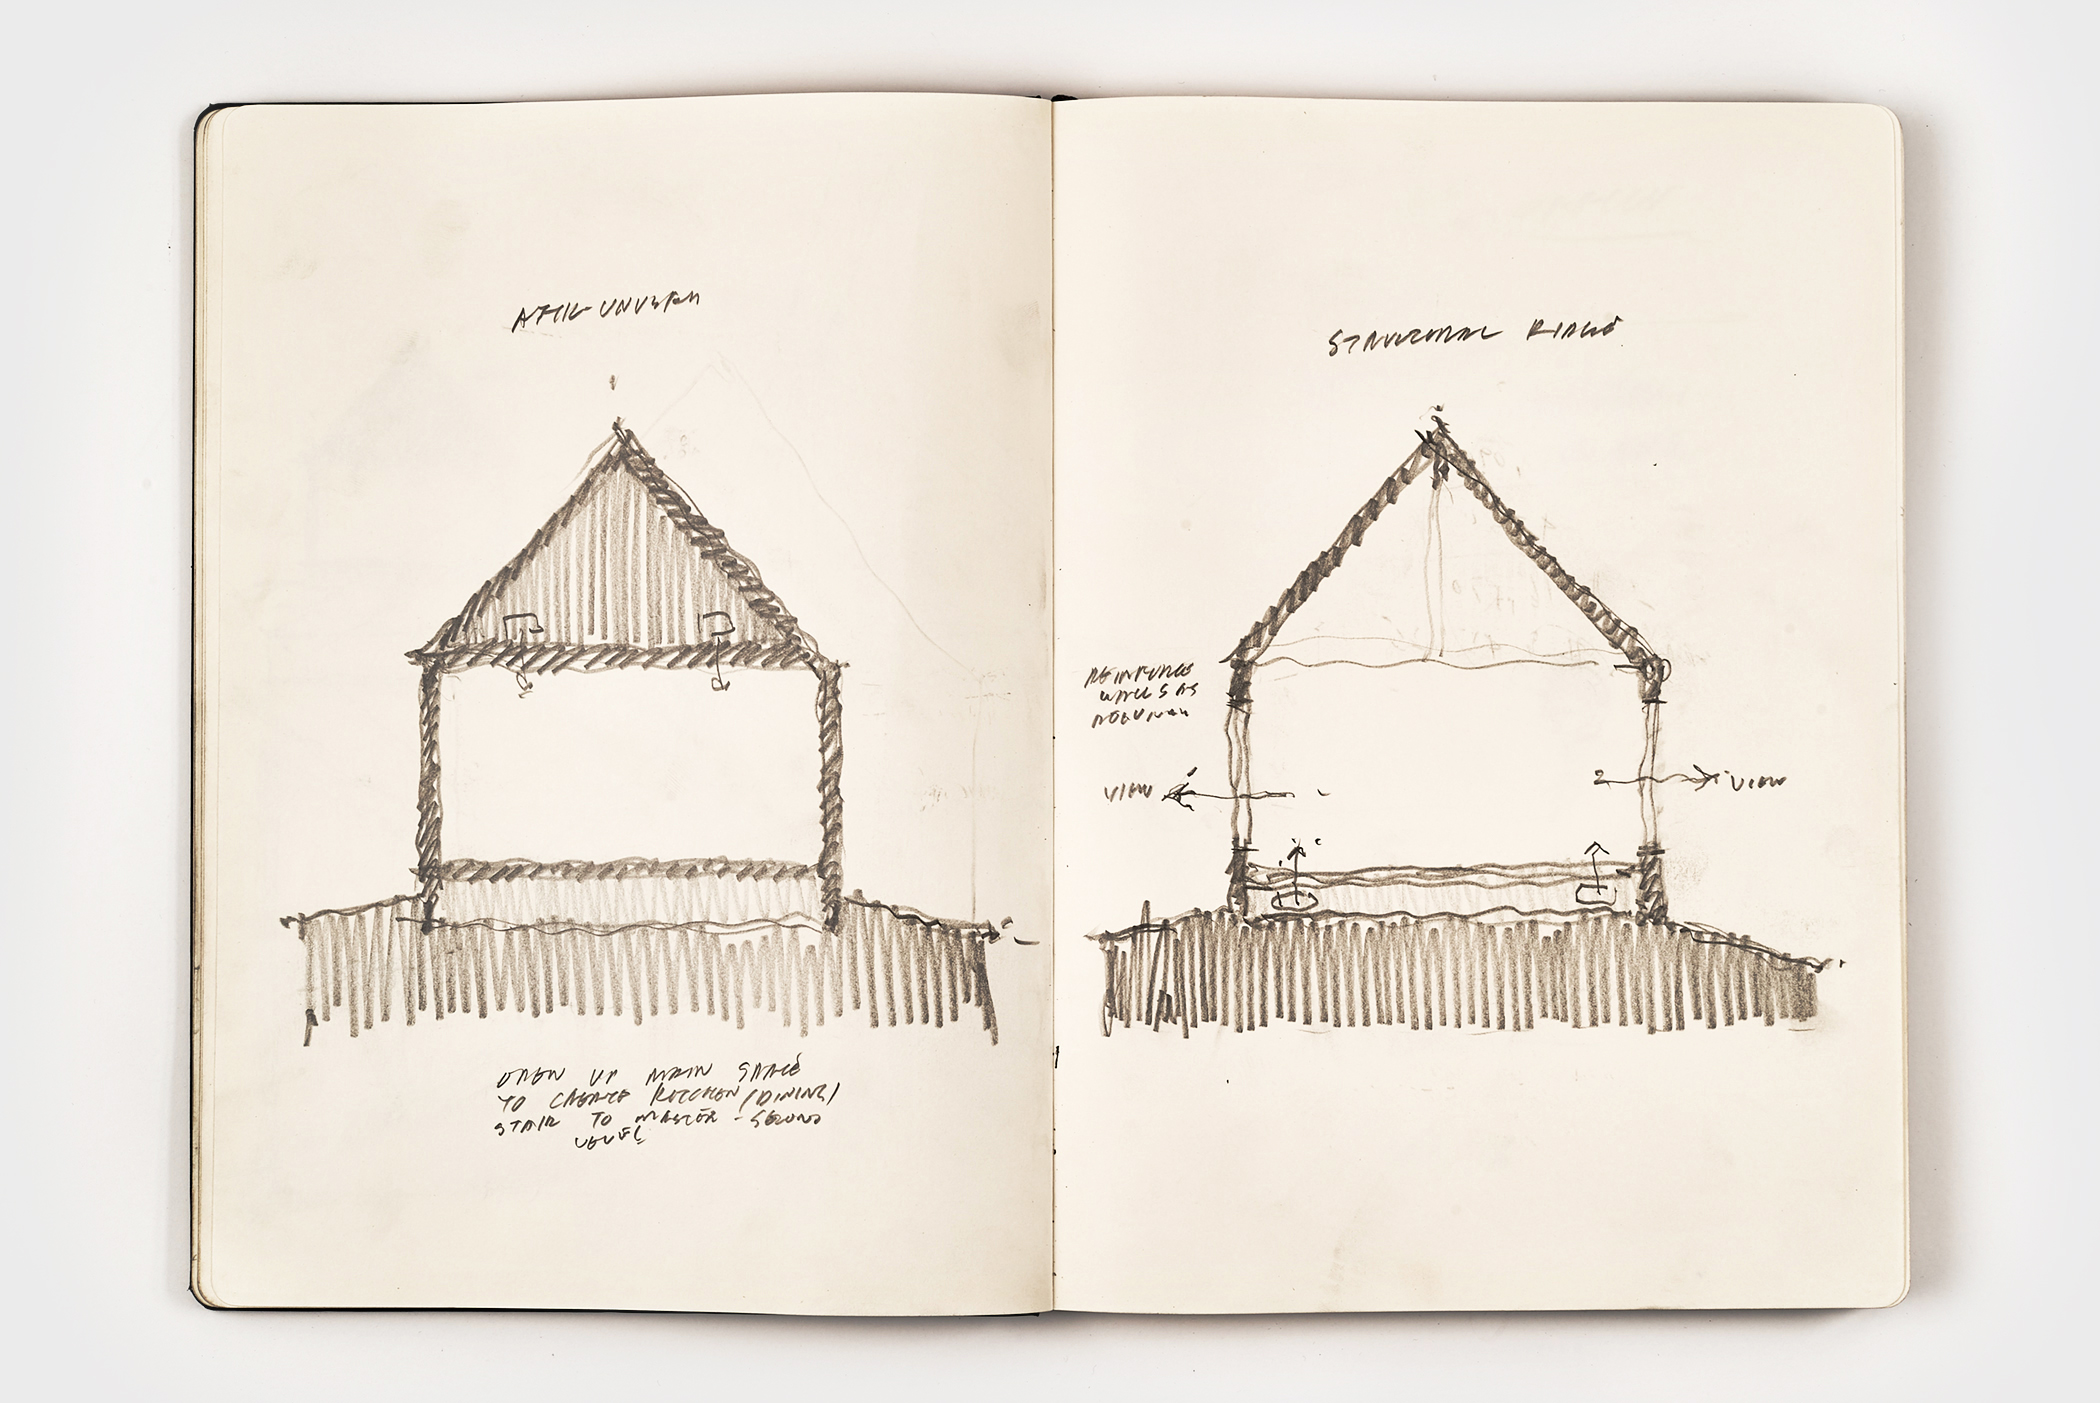 ATTIC - UNUSED
OPEN UP MAIN SPACE
TO CREATE KITCHEN/DINING/
STAIR TO MASTER - SECOND
LEVEL
STRUCTURAL RIDGE
REINFORCE
WALLS AS
REQUIRED
VIEW
VIEW